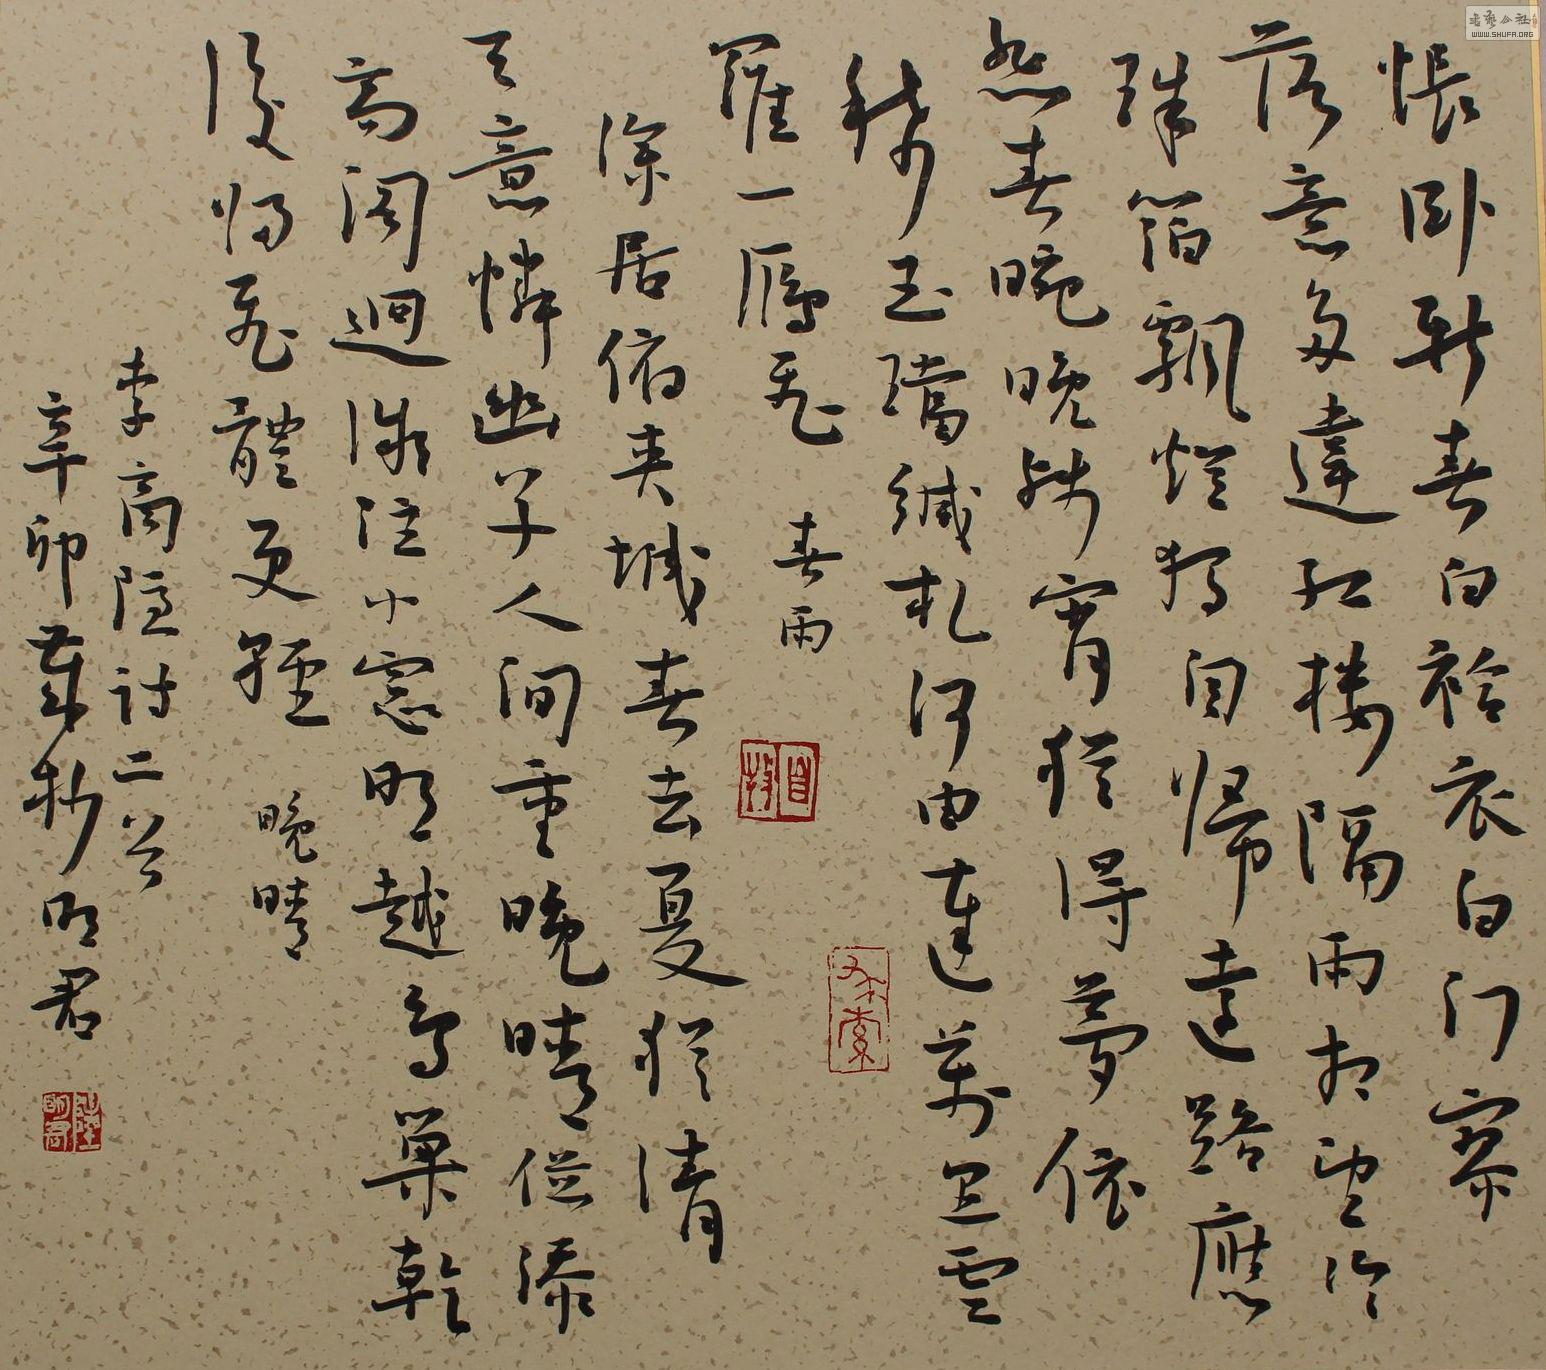 悵臥新春白袷衣白门寥
落意多違红楼隔雨相望冷
珠箔飘燈独自帰遠路應
悲春晼晚殘宵猶得夢依
稀玉璫缄札何由達萬里雲
羅一雁飛 春雨
深居俯夹城春去夏猶清
天意憐幽草人间重晚晴併添
高阁迥微注小窓明越鸟巢乾
後归飛體更輕 晚晴
李商隐诗二首
辛卯 明君
自牧
书艺公社
WWW.SHUFA.ORG